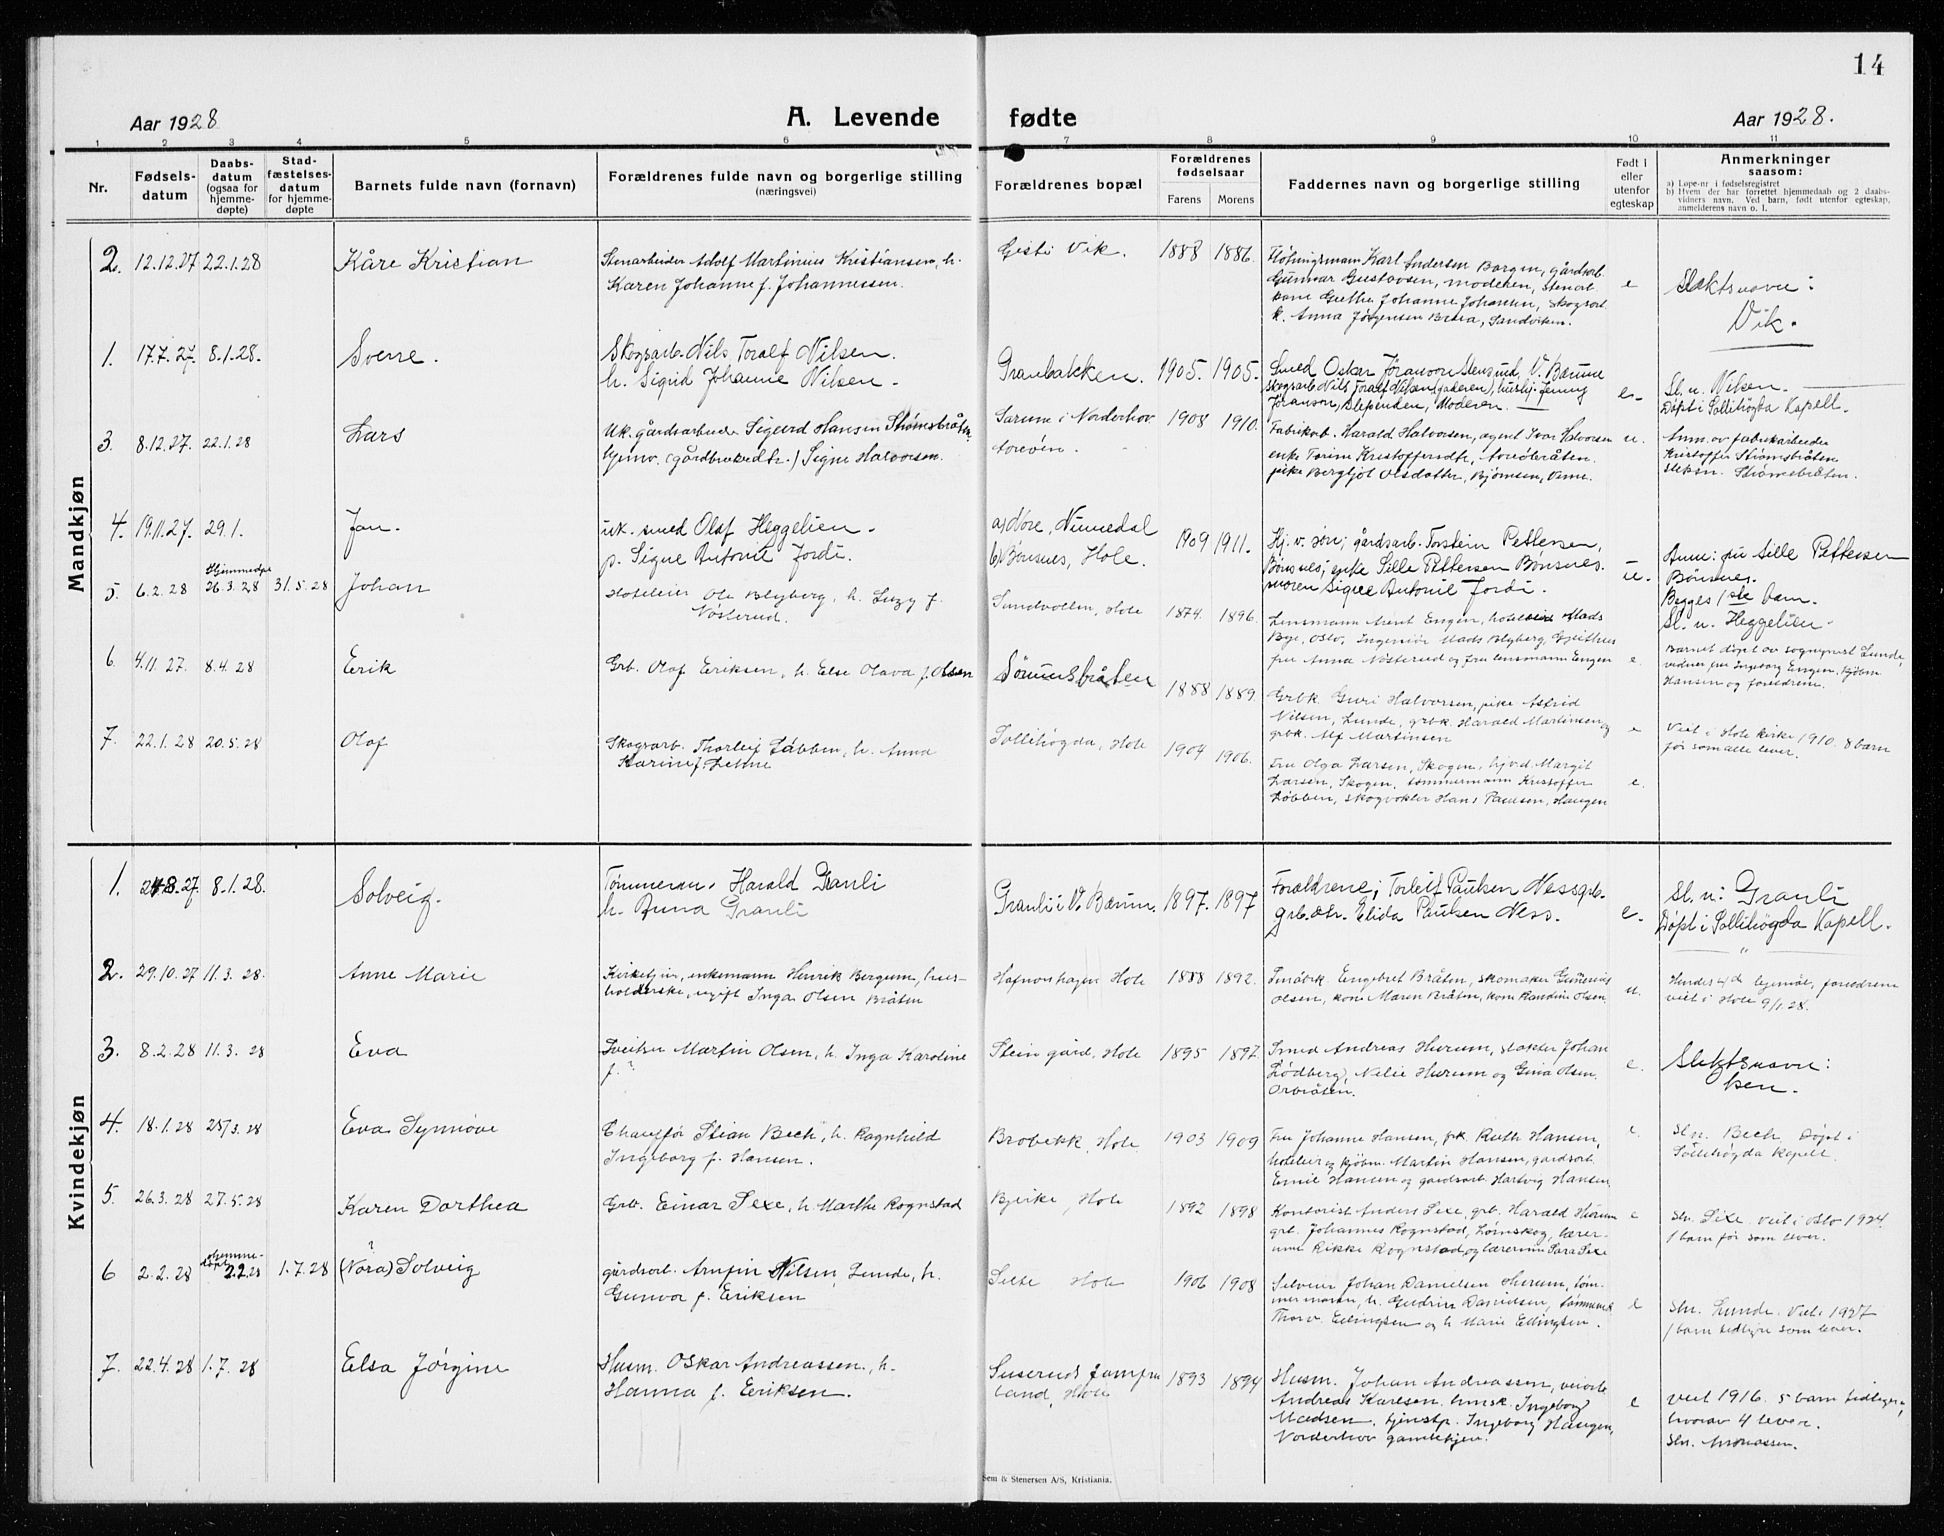 14
Aar 1928
A. Levende fødte
Aar 1928.
1 2 3 4 5 6 7 8 9 10 11
Nr.
Fødsels-
datum
Daabs-
datum
(ogsaa for
hjemme-
døpte)
Stad-
fæstelses-
datum
for hjemme-
døpte
Barnets fulde navn (fornavn)
Forældrenes fulde navn og borgerlige stilling
(næringsvei)
Forældrenes bopæl
Forældrenes
fødselsaar
Farens Morens
Faddernes navn og borgerlige stilling
Født i
eller
utenfor
egteskap
Anmerkninger
saasom:
a) Løpe-nr i fødselsregistret
b) Hvem der har forrettet hjemmedaab og 2 daabs-
vidners navn. Ved barn, født utenfor egteskap,
anmelderens navn o. l.
Mandkjøn
2. 12.12.27 22.1.28 Kåre Kristian
Stenarbeider Adolf Martinius Kristiansen, h.
Karen Johanne f. Johannessen.
Vik. 1888 1886.
Fløtningsmann Karl Andersen Borgen, gårdsarb.
Gunnar Gustavsen, moderen, stenarb.
kone Grethe Johanne Johansen, skogsarb.
k. Anna Jørgensen Sandviken.
e
Slektsnavn:
Vik.
1. 17.7.27. 8.1.28. Sverre.
Skogsarb. Nils Toralf Nilsen.
h. Sigrid Johanne Nilsen.
Granbakken. 1905. 1905.
Smed Oskar Jöranson Stensrud, V. Bærum
skogsarb Nils Toralf Nilsen (faderen), huslig Jenny
Jöranson, Slependen, Moderen.
e.
Sl. n. Nilsen.
Døpt i Sollihøgda Kapell.
3. 8.12.27. 22.1.28 Lars
Uk. gårdsarbeider Sigurd Hansen Strömsbråten,
(gårdbrukerdtr.) Signe Halvorsen.
i Norderhov
1908 1910.
Fabrikarb. Harald Halvorsen, agent Ivar Halvorsen
enke Torine Kristoffersdtr,
pike Bergljot Olsdatter, Bjørnsen,
u.
Anm. av fabrikarbeider
Kristoffer Strömsbråten
Slektsn. Strömsbråten.
4. 19.11.27. 29.1. Jan.
uk. smed Olaf Heggelien.
p. Signe Antonie Jordi.
a) Nummedal
b) Bønsnes, Hole.
1909 1911.
Hj. v. søn; gårdsarb. Torstein Pettersen,
Bønsnes; enke Sille Pettersen Bønsnes.
moren Signe Antonie Jordi.
u.
Anm: Sille Pettersen
Bønsnes.
Begges 1ste barn.
Sl. n. Heggelien.
5. 6.2.28 Hjemmedpt 26.3.28 31.5.28 Johan
Hoteleier Ole Blyberg, h. Luzy f.
Nøsterud.
Sundvollen, Hole 1874. 1896.
Lensmann Arent Engen, hoteleier Mads
Bye, Oslo, Ingeniør Mads Blyberg,
fru Anna Nøsterud og fru lensmann Engen
e.
Barnet døpt av sogneprest Lunde,
vidner fru Ingeborg Engen, kjøbm
Hansen og foreldrene.
6. 4.11.27. 8.4.28 Erik
Grb. Olaf Eriksen, h. Else Olava f. Olsen
Sørumsbråten 1888 1889.
Grbk. Guri Halvorsen, pike Astrid
Nilsen, Lunde, grbk. Harald Martinsen og
grbk. Alf Martinsen
e
Viet i Hole kirke 1910. 8 barn
før som alle lever.
7. 22.1.28 20.5.28 Olaf
Skogsarb. Thorleif Løbben, h. Anna
Karine f. Lehne
Sollihøgda, Hole 1904 1906.
Fru Olga Larsen, Skogen, hj.v.d. Margit
Larsen, Skogen, tømmermann Kristoffer
Løbben, skogvokter Hans Paulsen, Haugen
e.
Kvindekjøn
1. 24.8.27. 8.1.28. Solveig.
Tömmerm. Harald Granli
h. Anna Granli
Granli i V. Bærum. 1897. 1897
Forældrene; Torleif Paulsen Nessgrb.
grb.dtr. Elida Paulsen Ness.
e.
Sl. n: Granli
Døpt i Sollihögda Kapell.
2. 29.10.27 11.3.28. Anne Marie
Kirketjen., enkemann Henrik Bergum, hus-
holderske, ugift Inga Olsen Bråten
Hafnorshagen Hole 1888 1892.
Småbrk. Engebret Bråten, skomaker Gunerius
Olsen, kone Maren Bråten, kone Randine Olsen
u.
foreldrene
viet i Hole 9/1 28.
3. 8.2.28 11.3.28 Eva
Sveitser Martin Olsen, h. Inga Karoline
f. ?
Stein gård, Hole 1895 1897.
Smed Andreas Hurum, slakter Johan
Lødberg, Nelie Hurum og Gina Olsen
e.
Slektsnavn:
4. 18.1.28 25/3.28 Eva Synnøve
Chauffør Stian Bech, h. Ragnhild
Ingeborg f. Hansen.
Brobekk, Hole 1903 1909
Fru Johanne Hansen, frk. Ruth Hansen,
hoteleier og kjøbm. Martin Hansen, gårdsarb.
Emil Hansen og gårdsarb. Hartvig Hansen
e.
Sln. Bech. Døpt i
Sollihøgda kapell.
5. 26.3.28 27.5.28 Karen Dorthea
Grb. Einar Sexe, h. Marthe Rognstad
Bjerke, Hole 1892 1898
Kontorist Anders Sexe, grb. Harald Hurum
grb. Johannes Rognstad, Lørnskog, lærer-
inne Rikke Rognstad, og lærerinne Sara Sexe
e
Sln. Sexe. viet i Oslo 1924.
1 barn før som lever.
6 2.2.28 Hjemme-
døpt 2.2.28 1.7.28 (Nora) Solveig
gårdsarb. Arnfin Nilsen Lunde, h.
Gunvor f. Eriksen
Hole 1906 1908
Johan Danielsen Hurum, tøm-
mermann, h. Gudrun Danielsen, tømmerm
Thorv. Ellingsen og h Marie Ellingsen.
e
Sln. Lunde. Viet 1927
1 barn tidligere som lever.
7. 22.4.28 1.7.28 Elsa Jørgine
Husm. Oskar Andreassen, h.
Hanna f. Eriksen.
Hole 1893 1894
Husm. Johan Andreassen,
Andreas Karlsen, Ingeborg
Madsen, tjenstp. Ingeborg Haugen,
Norderhov gamlehjem.
e
Viet 1916. 5 barn tidligere,
hvorav 4 lever.
Sln. Andreassen.
Sem & Stenersen A/S, Kristiania.